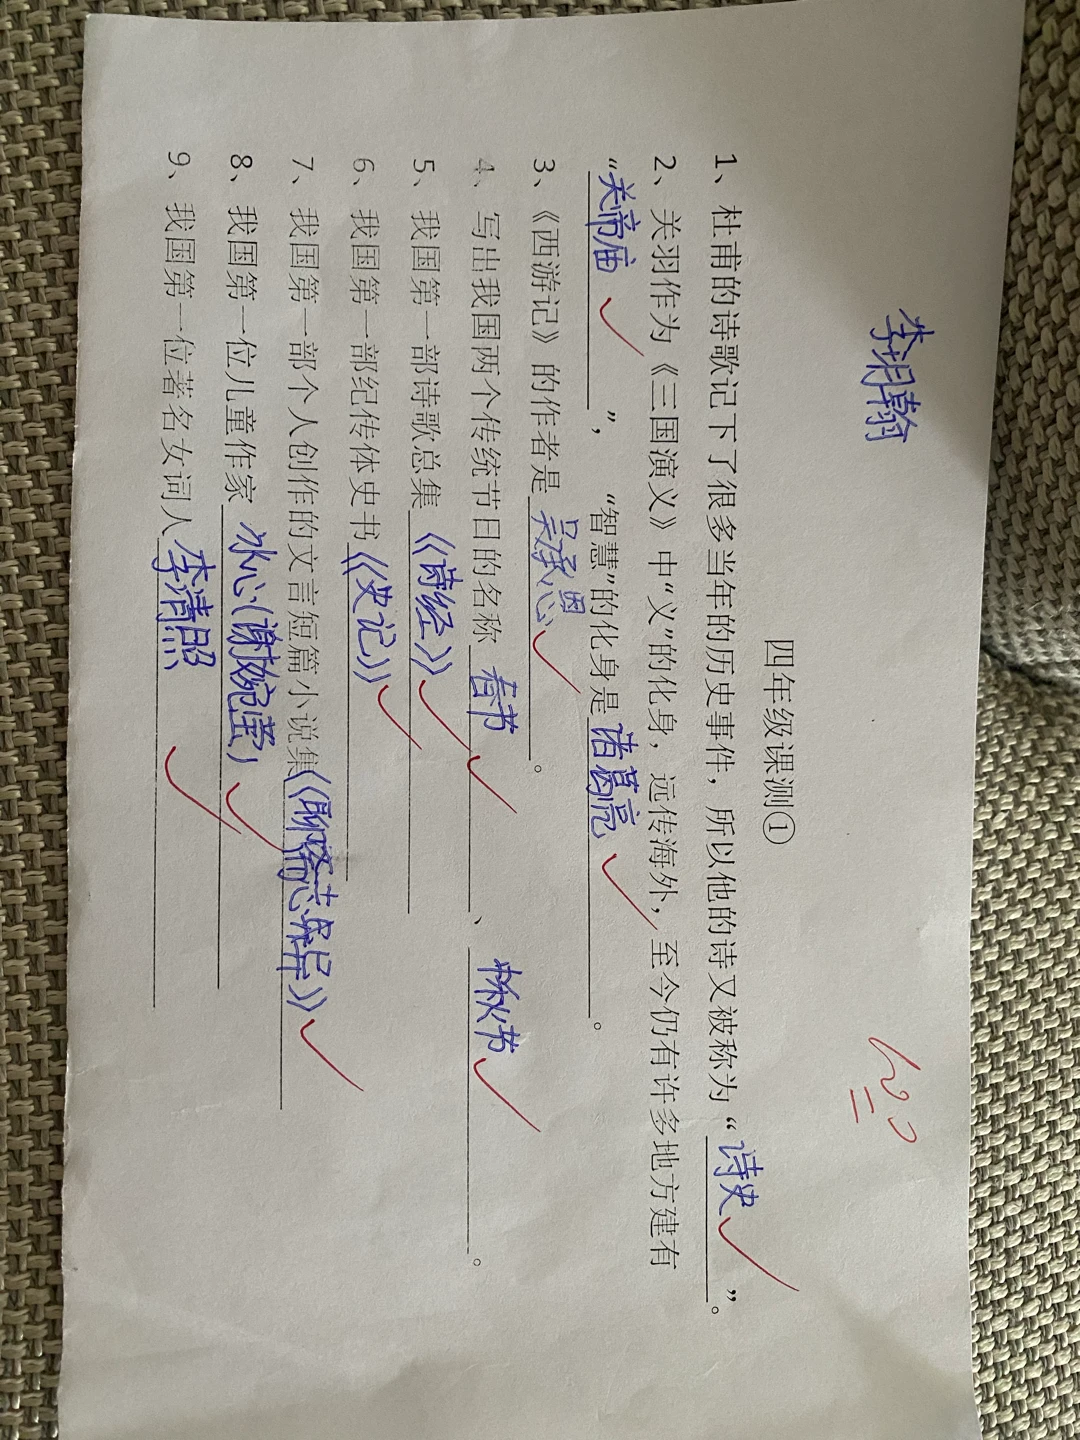 李玥翰
四年级课测①
1、杜甫的诗歌记下了很多当年的历史事件，所以他的诗又被称为“诗史”。
2、关羽作为《三国演义》中“义”的化身，远传海外，至今仍有许多地方建有
“关帝庙”，“智慧”的化身是诸葛亮。
3、《西游记》的作者是吴承恩。
4、写出我国两个传统节日的名称春节、中秋节。
5、我国第一部诗歌总集《诗经》
6、我国第一部纪传体史书《史记》
7、我国第一部个人创作的文言短篇小说集《聊斋志异》
8、我国第一位儿童作家冰心（谢婉莹）
9、我国第一位著名女词人李清照